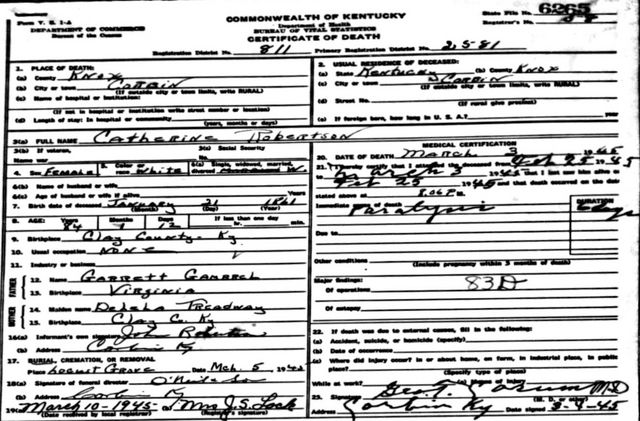 Form V. S. 1-A
DEPARTMENT OF COMMERCE
Bureau of the Census
COMMONWEALTH OF KENTUCKY
Department of Health
BUREAU OF VITAL STATISTICS
CERTIFICATE OF DEATH
State File No. 6265
Registrar's No.
Registration District No. 811
Primary Registration District No. 2581
1. PLACE OF DEATH:
(a) County Knox
(b) City or town Corbin
(If outside city or town limits, write RURAL)
(c) Name of hospital or institution:
(If not in hospital or institution write street number or location)
(d) Length of stay: In hospital or community (years, months or days)
2. USUAL RESIDENCE OF DECEASED:
(a) State Kentucky (b) County Knox
(c) City or town Corbin
(If outside city or town limits, write RURAL)
(d) Street No.
(If rural give precinct)
(e) If foreign born, how long in U. S. A.? years
3(a) FULL NAME Catherine Robertson
3(b) If veteran,
Name war
3(c) Social Security
No.
4. Sex Female
5. Color or race White
6(a) Single, widowed, married, divorced W.
6(b) Name of husband or wife
6(c) Age of husband or wife if alive Years
7. Birth date of deceased January 21 1861
(Month) (Day) (Year)
8. AGE: Years Months Days If less than one day
84 1 12 hr. min.
9. Birthplace Clay County, Ky
10. Usual occupation None
11. Industry or business
FATHER
12. Name Garrett Gambrel
13. Birthplace Virginia
MOTHER
14. Maiden name Treadway
15. Birthplace Clay C. Ky
16(a) Informant's own signature John
(b) Address Corbin Ky
17. BURIAL, CREMATION, OR REMOVAL
Place Locust Grave Date Mch. 5 1945
18(a) Signature of funeral director O'Neil & Son
(b) Address Corbin Ky
19(a) March 10-1945 (b) Mrs J. S. Look
(Date received by local registrar) (Registrar's signature)
MEDICAL CERTIFICATION
20. DATE OF DEATH March 3 1945
21. I hereby certify that I attended the deceased from Feb 25 1945
to March 3 1945 that I last saw him alive on
Feb 25 1945 and that death occurred on the date
stated above at 8.06 P.M.
Immediate cause of death
Paralysis
DURATION
Due to
Other conditions
(Include pregnancy within 3 months of death)
Major findings:
Of operations 83D
Of autopsy
22. If death was due to external causes, fill in the following:
(a) Accident, suicide, or homicide (specify)
(b) Date of occurrence
(c) Where did injury occur? in or about home, on farm, in industrial place, in public
place?
(Specify type of place)
While at work? (e) Means of injury
23. Signature Geo. T. M.D.
(M. D. or other)
Address Corbin Ky Date signed 3-4-45